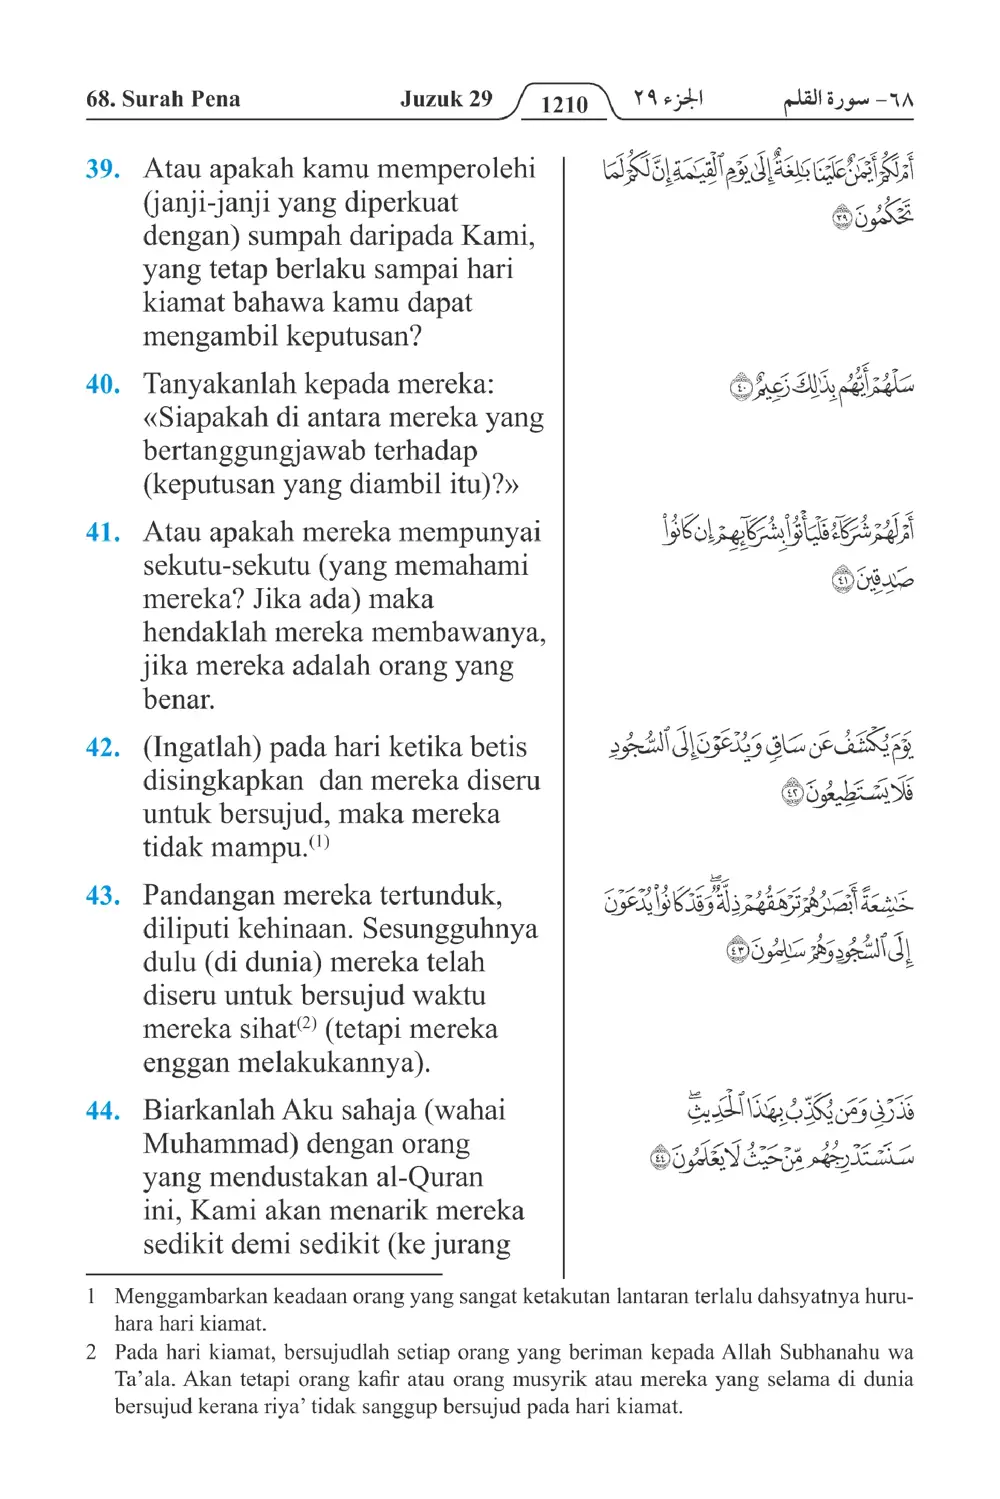 68. Surah Pena Juzuk 29 1210 الجزء ٢٩ ٦٨- سورة القلم
39. Atau apakah kamu memperolehi
(janji-janji yang diperkuat
dengan) sumpah daripada Kami,
yang tetap berlaku sampai hari
kiamat bahawa kamu dapat
mengambil keputusan?
أَمْ لَكُمْ أَيْمَٰنٌ عَلَيْنَا بَٰلِغَةٌ إِلَىٰ يَوْمِ ٱلْقِيَٰمَةِ إِنَّ لَكُمْ لَمَا
تَحْكُمُونَ ٣٩
40. Tanyakanlah kepada mereka:
«Siapakah di antara mereka yang
bertanggungjawab terhadap
(keputusan yang diambil itu)?»
سَلْهُمْ أَيُّهُم بِذَٰلِكَ زَعِيمٌ ٤٠
41. Atau apakah mereka mempunyai
sekutu-sekutu (yang memahami
mereka? Jika ada) maka
hendaklah mereka membawanya,
jika mereka adalah orang yang
benar.
أَمْ لَهُمْ شُرَكَآءُ فَلْيَأْتُوا۟ بِشُرَكَآئِهِمْ إِن كَانُوا۟
صَٰدِقِينَ ٤١
42. (Ingatlah) pada hari ketika betis
disingkapkan dan mereka diseru
untuk bersujud, maka mereka
tidak mampu.(1)
يَوْمَ يُكْشَفُ عَن سَاقٍ وَيُدْعَوْنَ إِلَى ٱلسُّجُودِ
فَلَا يَسْتَطِيعُونَ ٤٢
43. Pandangan mereka tertunduk,
diliputi kehinaan. Sesungguhnya
dulu (di dunia) mereka telah
diseru untuk bersujud waktu
mereka sihat(2) (tetapi mereka
enggan melakukannya).
خَٰشِعَةً أَبْصَٰرُهُمْ تَرْهَقُهُمْ ذِلَّةٌ ۖ وَقَدْ كَانُوا۟ يُدْعَوْنَ
إِلَى ٱلسُّجُودِ وَهُمْ سَٰلِمُونَ ٤٣
44. Biarkanlah Aku sahaja (wahai
Muhammad) dengan orang
yang mendustakan al-Quran
ini, Kami akan menarik mereka
sedikit demi sedikit (ke jurang
فَذَرْنِى وَمَن يُكَذِّبُ بِهَٰذَا ٱلْحَدِيثِ ۖ
سَنَسْتَدْرِجُهُم مِّنْ حَيْثُ لَا يَعْلَمُونَ ٤٤
1 Menggambarkan keadaan orang yang sangat ketakutan lantaran terlalu dahsyatnya huru-
hara hari kiamat.
2 Pada hari kiamat, bersujudlah setiap orang yang beriman kepada Allah Subhanahu wa
Ta’ala. Akan tetapi orang kafir atau orang musyrik atau mereka yang selama di dunia
bersujud kerana riya’ tidak sanggup bersujud pada hari kiamat.